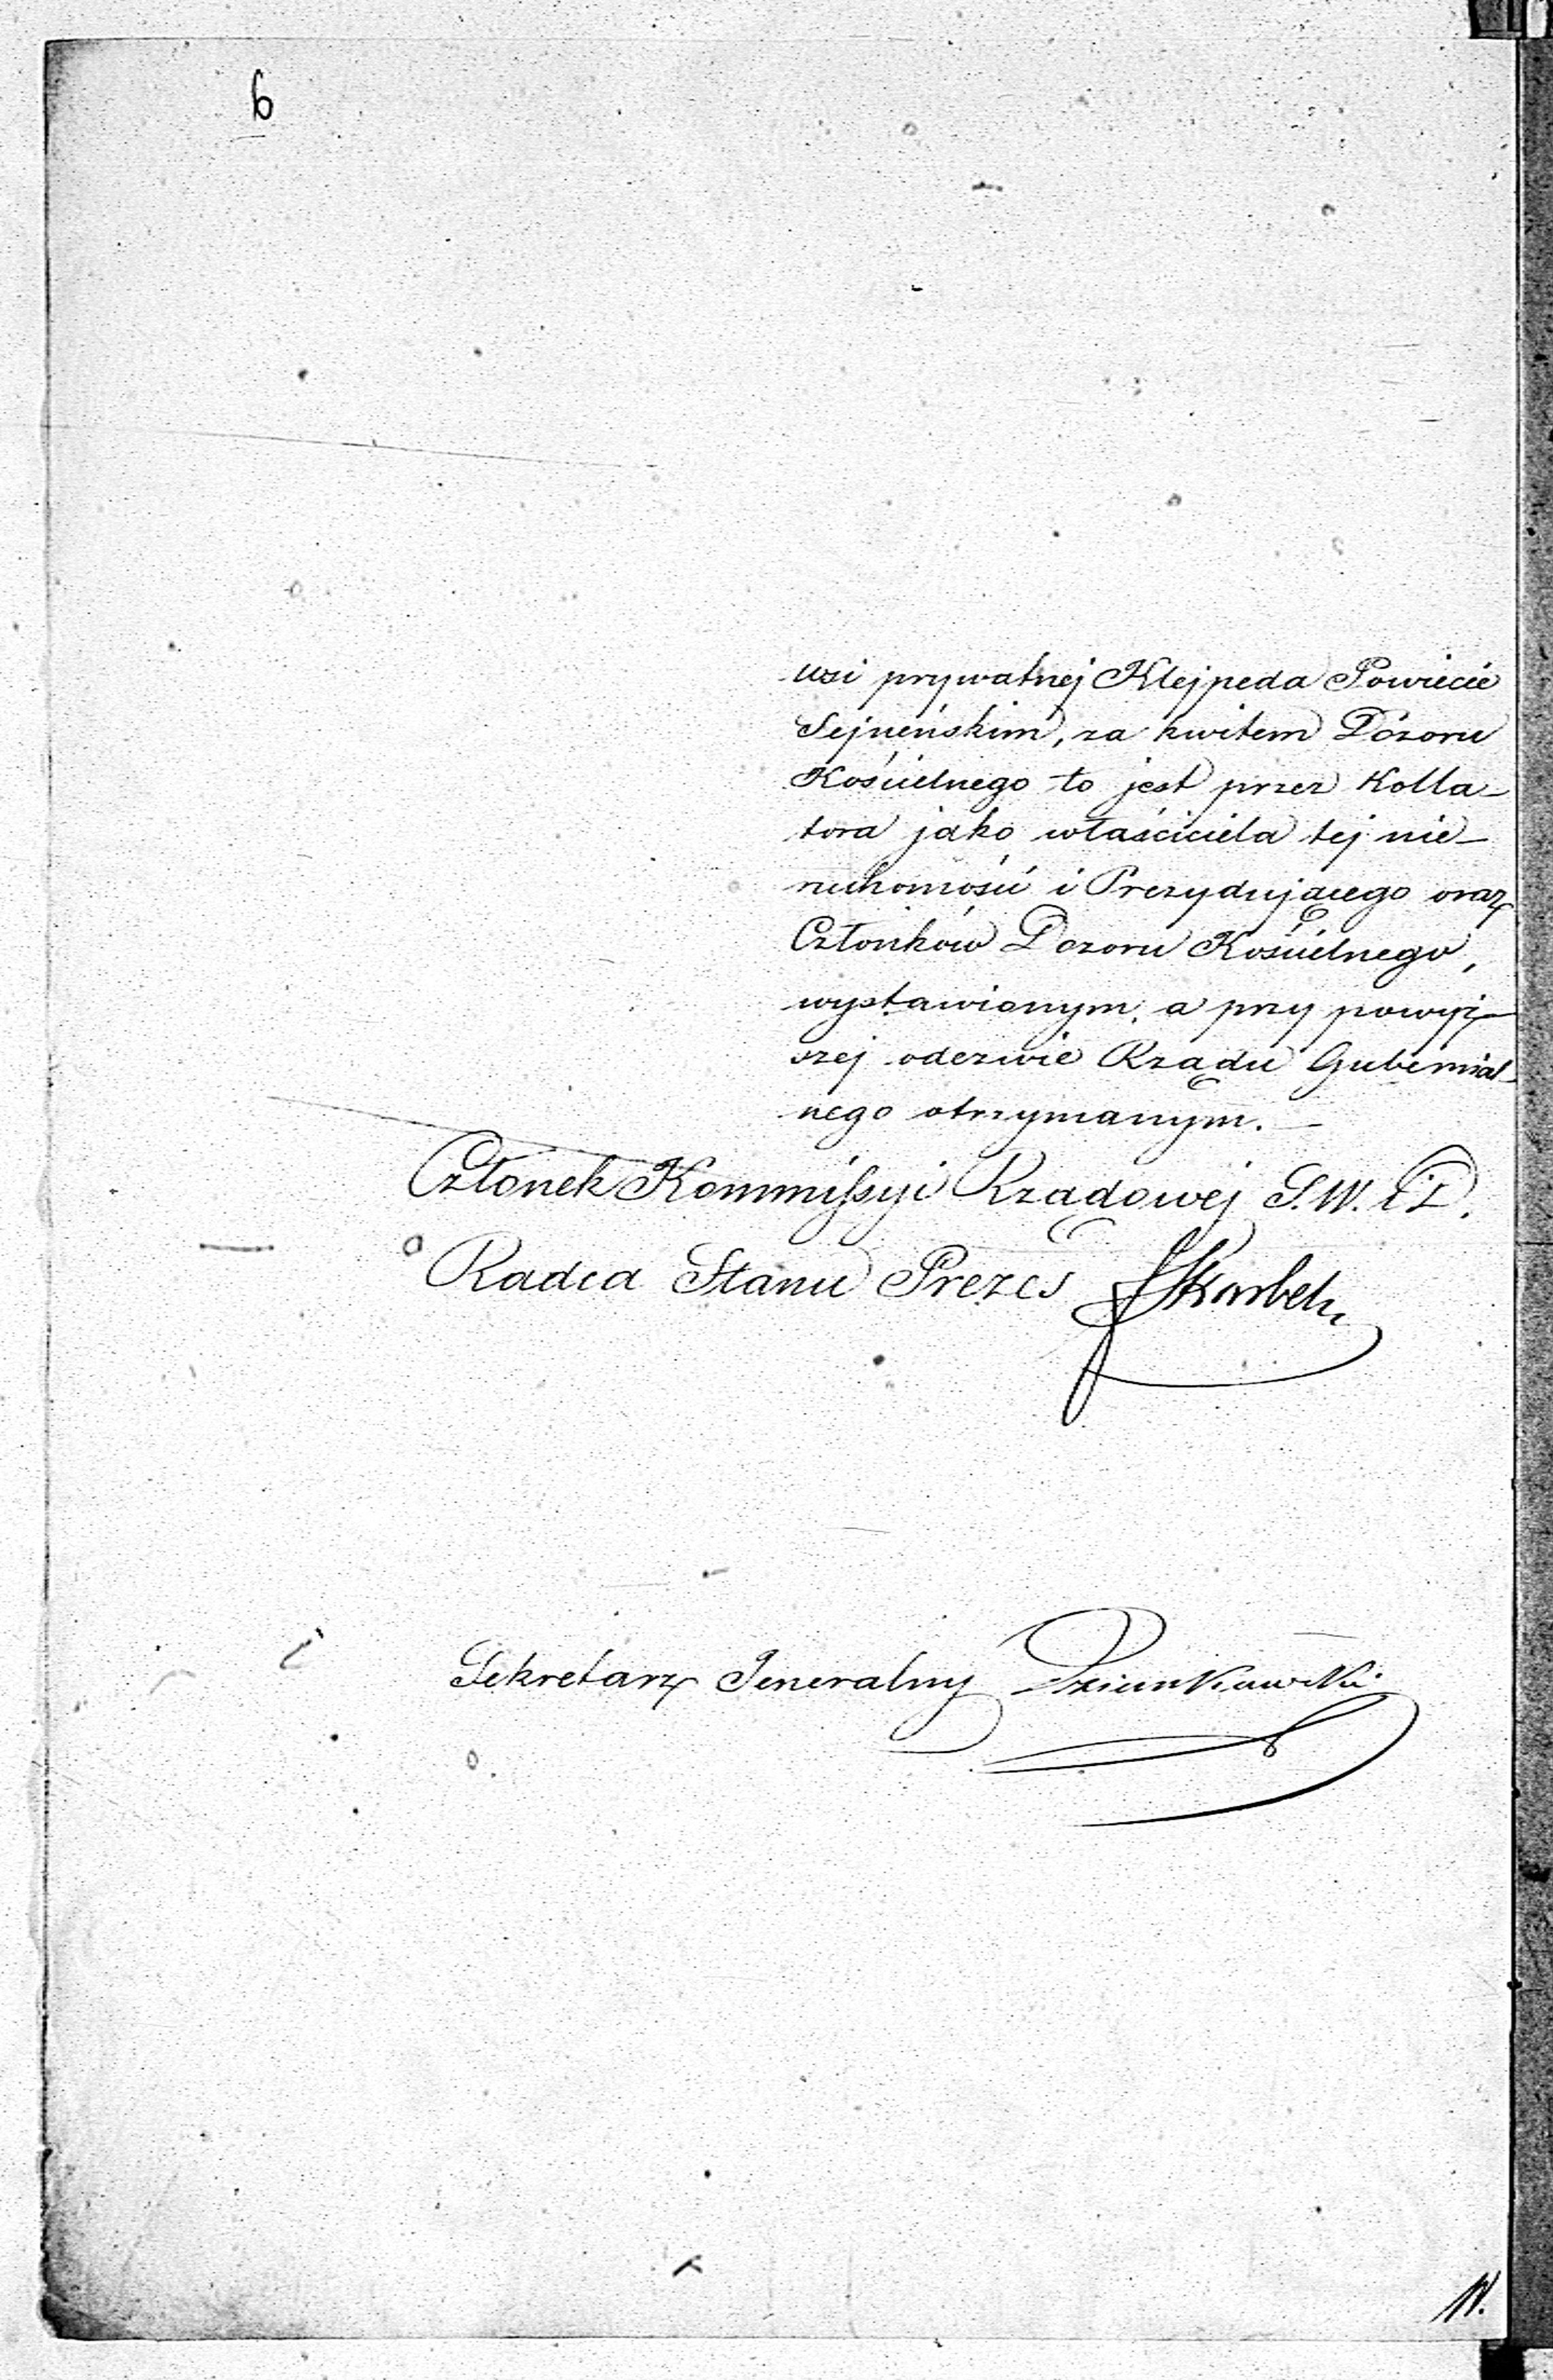 6
wsi prywatnej Klejpeda Powiecie
Sejneńskim, za kwitem Dozoru
Kościelnego to jest przez Kolla-
tora jako właściciela tej nie-
ruchomości i Prezydującego oraz
Członków Dozoru Kościelnego,
wystawionym, a przy powyż-
szej odezwie Rządu Gubernial-
nego otrzymanym.
Członek Kommissyi Rządowej S. W. i D.
Radca Stanu Prezes Skarbek
Sekretarz Jeneralny